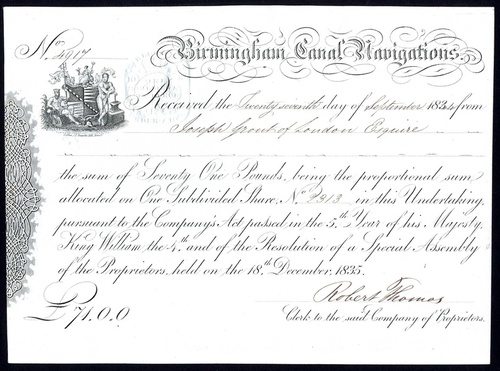 No. 4917
Birmingham Canal Navigations.
Received the Twenty seventh day of September 1834 from
Joseph Grout of London Esquire
the sum of Seventy One Pounds, being the proportional sum
allocated on One Subdivided Share, No. 4913 in this Undertaking,
pursuant to the Company's Act passed in the 5th Year of his Majesty,
King William the 4th and of the Resolution of a Special Assembly
of the Proprietors, held on the 18th December, 1835.
Robert Thomas
£71.0.0
Clerk to the said Company of Proprietors.